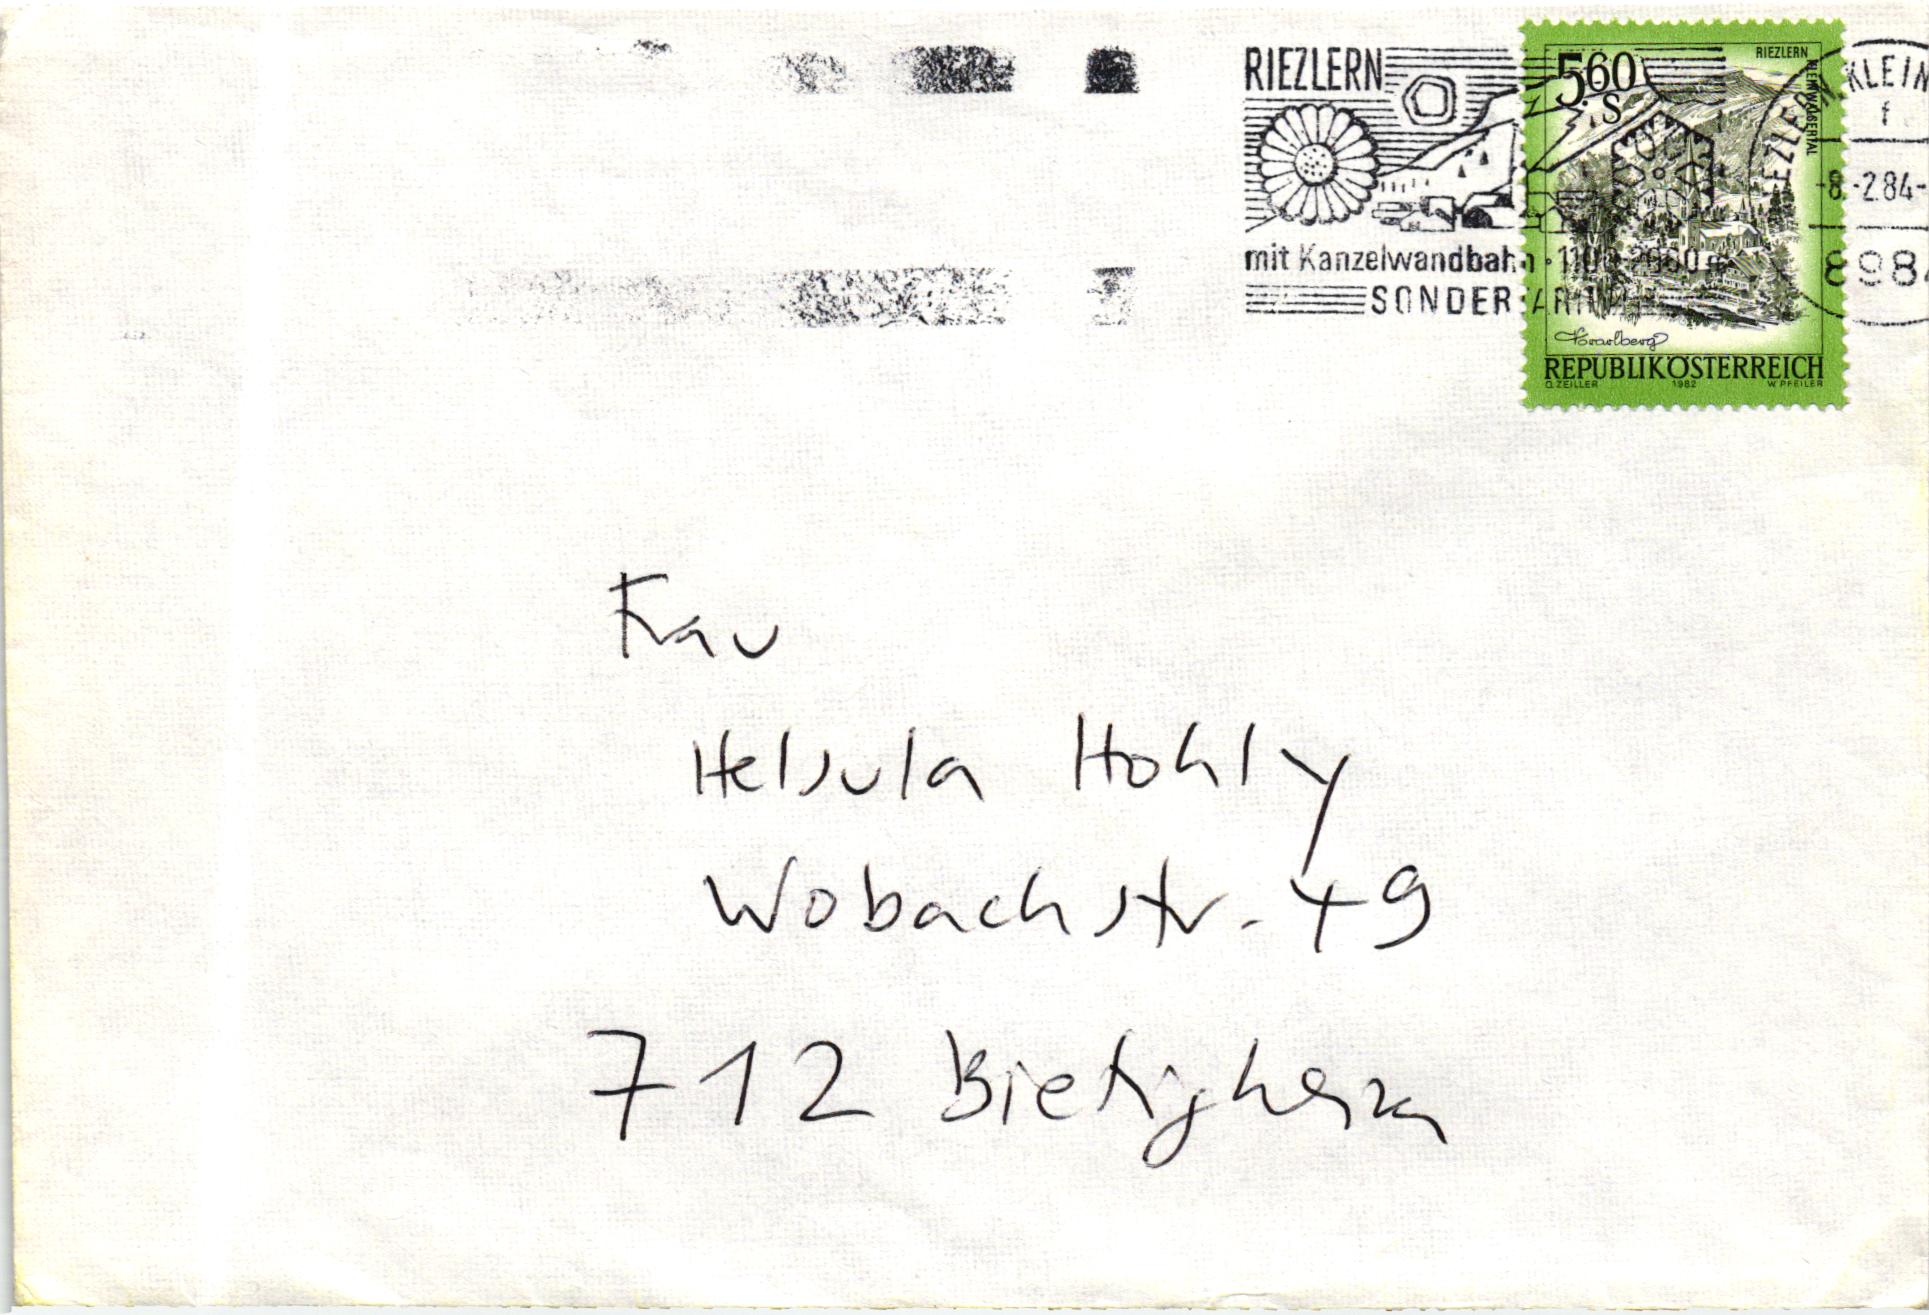 RIEZLERN
mit Kanzelwandbahn
SONDER
5.60
S
RIEZLERN
KLEINWALSERTAL
Vorarlberg
REPUBLIK ÖSTERREICH
O. ZEILLER 1982 W. PFEILER
KLEIN
f
-8.-2.84-
898
Frau
Helsula Hohly
Wobachstr. 49
712 Bietigheim